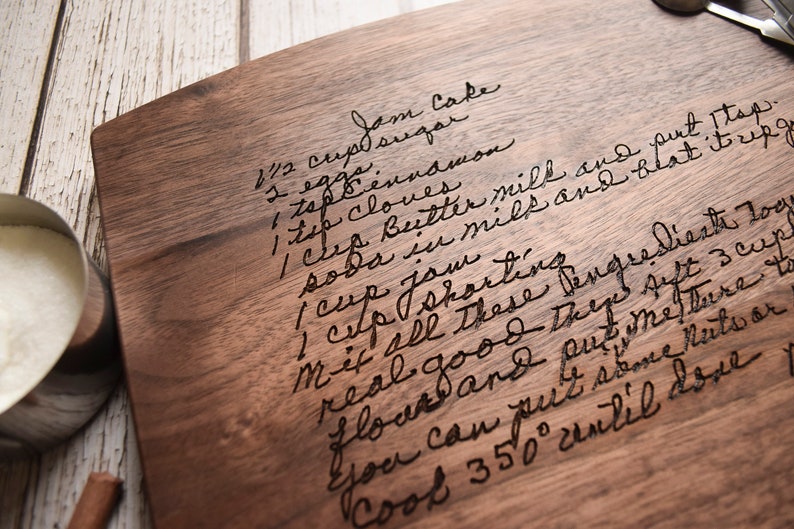 Jam Cake
1 1/2 cup sugar
2 eggs
1 tsp Cinnamon
1 tsp Cloves
1 cup Butter milk and put 1 tsp.
soda in milk and beat it up
1 cup jam
1 cup shorting
Mix all these ingredients
real good then sift 3 cup
flour and put
you can put some nuts or
Cook 350° until done